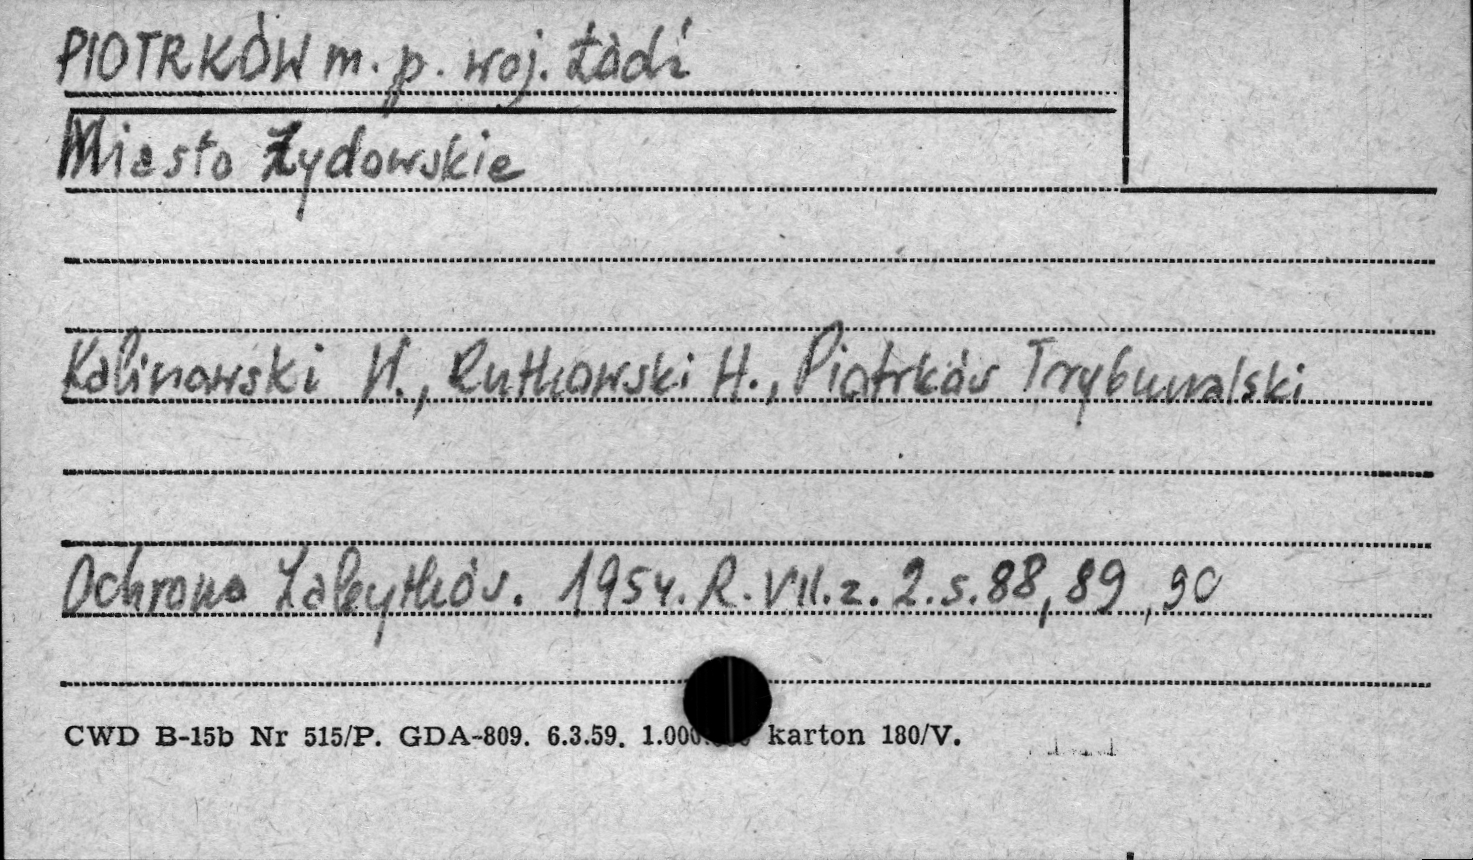 PIOTRKÓW m. p. woj. Łódź
Miasto Żydowskie
Kalinowski W., Rutkowski H., Piotrków Trybunalski
Ochrona Zabytków. 1954. R. VII. z. 2. s. 88, 89, 90
CWD B-15b Nr 515/P. GDA-809. 6.3.59. 1.000.000 karton 180/V.